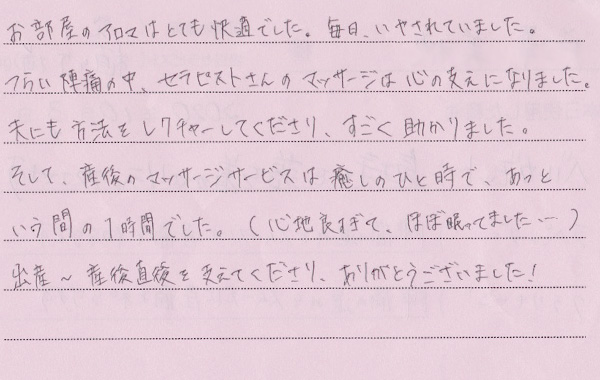 お部屋のアロマはとても快適でした。毎日、いやされていました。
つらい陣痛の中、セラピストさんのマッサージは心の支えになりました。
夫にも方法をレクチャーしてくださり、すごく助かりました。
そして、産後のマッサージサービスは癒しのひと時で、あっと
いう間の1時間でした。(心地良すぎて、ほぼ眠ってました…)
出産~産後直後を支えてくださり、ありがとうございました!